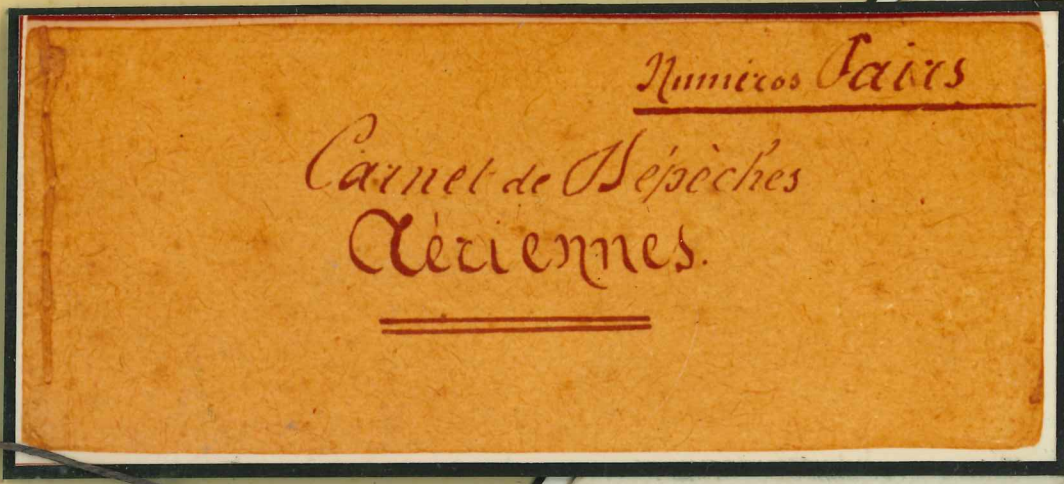 Numéros Pairs
Carnet de Dépêches
Aériennes.